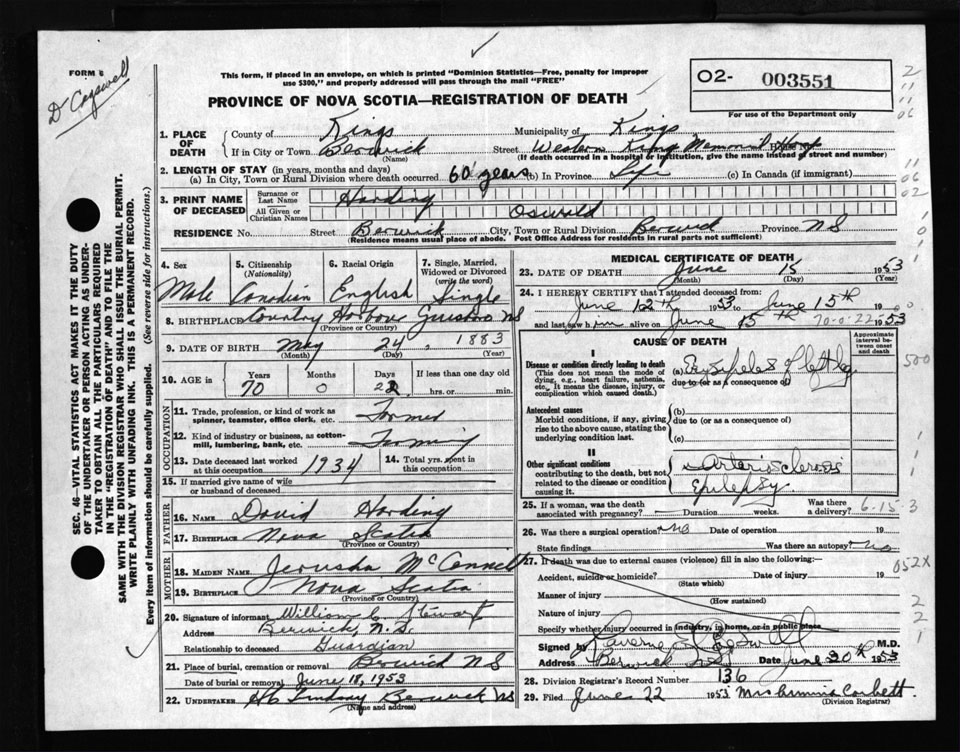 FORM 6
D Cogswell
This form, if placed in an envelope, on which is printed "Dominion Statistics—Free, penalty for improper
use $300," and properly addressed will pass through the mail "FREE"
02- 003551
For use of the Department only
PROVINCE OF NOVA SCOTIA—REGISTRATION OF DEATH
1. PLACE OF DEATH
County of Kings Municipality of Kings
If in City or Town Berwick Street Western Kings Memorial Hosp
(Name) (If death occurred in a hospital or institution, give the name instead of street and number)
2. LENGTH OF STAY (in years, months and days)
(a) In City, Town or Rural Division where death occurred 60 years (b) In Province Life (c) In Canada (if immigrant)
3. PRINT NAME OF DECEASED
Surname or Last Name Harding
All Given or Christian Names Oswald
RESIDENCE No. Street Berwick City, Town or Rural Division Berwick Province NS
(Residence means usual place of abode. Post Office Address for residents in rural parts not sufficient)
4. Sex Male
5. Citizenship (Nationality) Canadian
6. Racial Origin English
7. Single, Married, Widowed or Divorced (write the word) Single
8. BIRTHPLACE Country Harbour Guysboro NS
(Province or Country)
9. DATE OF BIRTH May 24, 1883
(Month) (Day) (Year)
10. AGE in Years Months Days If less than one day old
70 0 22 hrs. or min.
OCCUPATION
11. Trade, profession, or kind of work as spinner, teamster, office clerk, etc. Farmer
12. Kind of industry or business, as cotton-mill, lumbering, bank, etc. Farming
13. Date deceased last worked at this occupation 1934
14. Total yrs. spent in this occupation
15. If married give name of wife or husband of deceased
FATHER
16. NAME David Harding
17. BIRTHPLACE Nova Scotia
(Province or Country)
MOTHER
18. MAIDEN NAME Jerusha McConnell
19. BIRTHPLACE Nova Scotia
(Province or Country)
20. Signature of informant William C Stewart
Address Berwick, N.S.
Relationship to deceased Guardian
21. Place of burial, cremation or removal Berwick NS
Date of burial or removal June 18, 1953
22. UNDERTAKER Lindsay Berwick NS
(Name and address)
MEDICAL CERTIFICATE OF DEATH
23. DATE OF DEATH June 15 1953
(Month) (Day)
24. I HEREBY CERTIFY that I attended deceased from
June 12th 1953 to June 15th
and last saw him alive on June 15th 1953
70-0-22
CAUSE OF DEATH
Approximate interval between onset and death
I
Disease or condition directly leading to death
(This does not mean the mode of dying, e.g., heart failure, asthenia, etc. It means the disease, injury, or complication which caused death.)
(a) Erysipelas of left leg
due to (or as a consequence of)
Antecedent causes
Morbid conditions, if any, giving rise to the above cause, stating the underlying condition last.
(b)
due to (or as a consequence of)
(c)
II
Other significant conditions
contributing to the death, but not related to the disease or condition causing it.
Arteriosclerosis
Epilepsy
25. If a woman, was the death associated with pregnancy? Duration weeks. Was there a delivery?
6-15 3
26. Was there a surgical operation? No Date of operation 19
State findings Was there an autopsy? No
27. If death was due to external causes (violence) fill in also the following:
Accident, suicide or homicide? Date of injury 19
(State which)
052X
Manner of injury
(How sustained)
Nature of injury
Specify whether injury occurred in industry, in home, or in public place
Signed by Laverne E Cogswell M.D.
Address Berwick NS Date June 20th 1953
28. Division Registrar's Record Number 136
29. Filed June 22 1953 Mrs Corbett
(Division Registrar)
SEC. 46—VITAL STATISTICS ACT MAKES IT THE DUTY
OF THE UNDERTAKER OR PERSON ACTING AS UNDER-
TAKER TO OBTAIN ALL THE PARTICULARS REQUIRED
IN THE "REGISTRATION OF DEATH" AND TO FILE THE
SAME WITH THE DIVISION REGISTRAR WHO SHALL ISSUE THE BURIAL PERMIT.
WRITE PLAINLY WITH UNFADING INK. THIS IS A PERMANENT RECORD.
Every item of information should be carefully supplied. (See reverse side for instructions.)